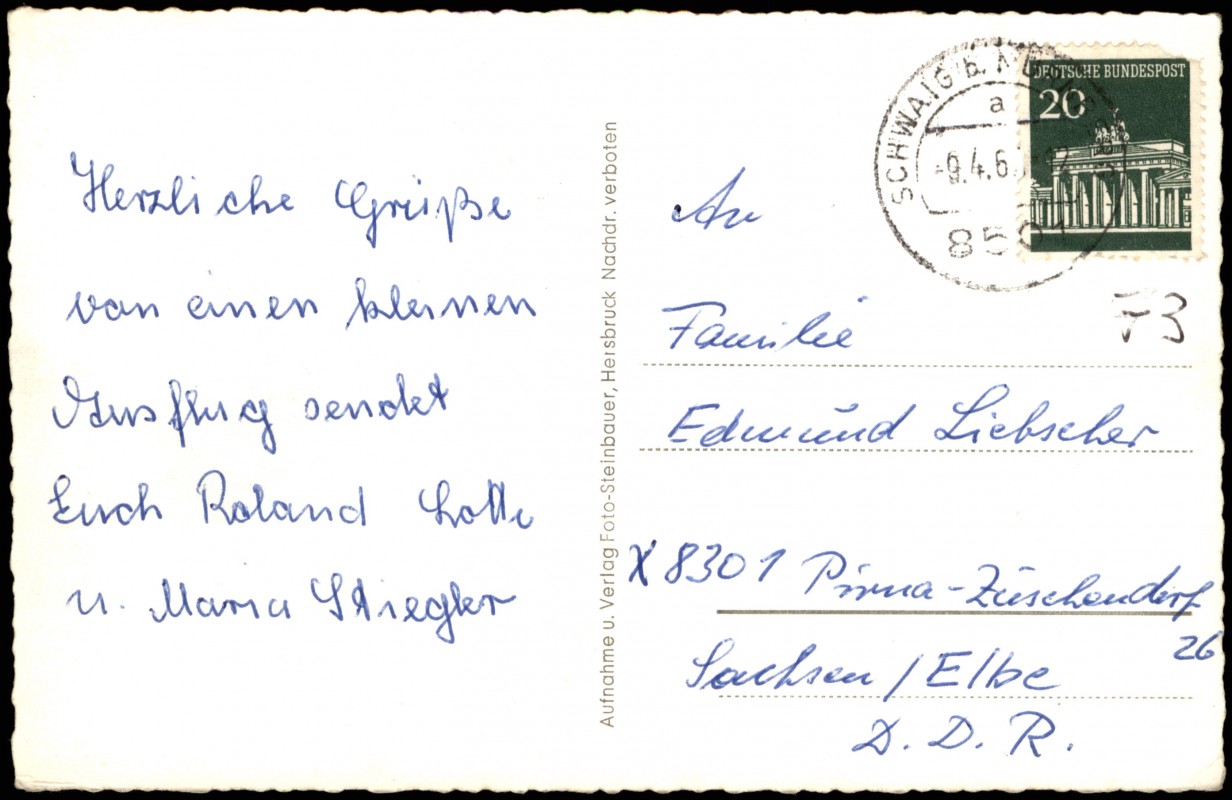 Herzliche Grüße
von einen kleinen
Ausflug sendet
Euch Roland Lotte
u. Maria Stiegler
Aufnahme u. Verlag Foto-Steinbauer, Hersbruck Nachdr. verboten
SCHWAIG b.
a
DEUTSCHE BUNDESPOST
20
73
An
Familie
Edmund Liebscher
X 8301 Pirna-Zuschendorf
26
Sachsen/Elbe
D. D. R.